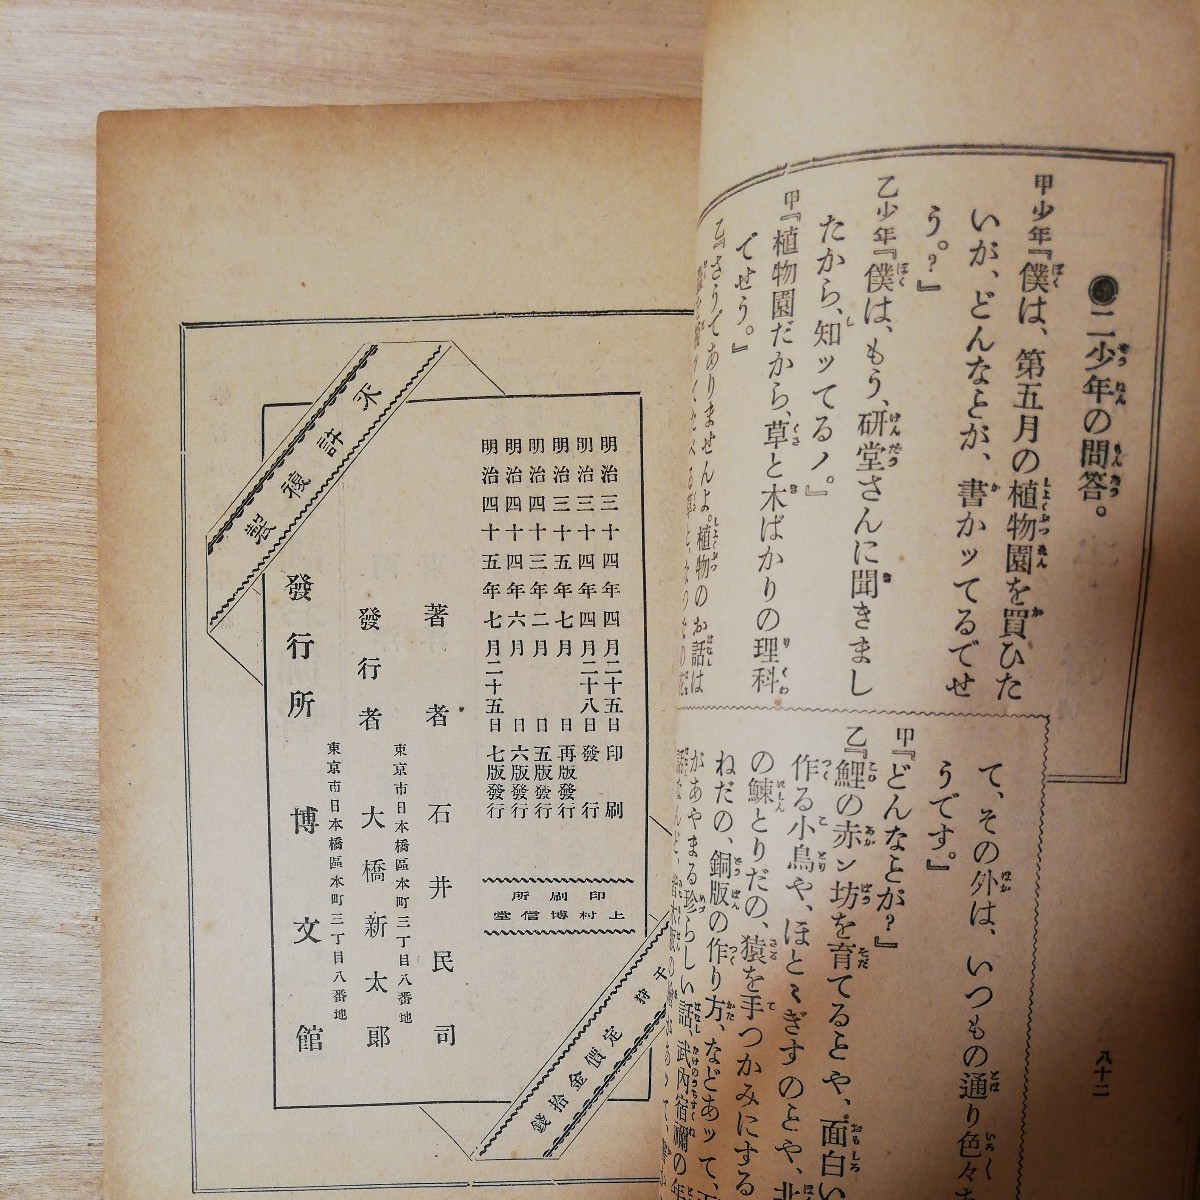 ●二少年の問答。
甲少年『僕は、第五月の植物園を買ひた
いが、どんなヿが、書かッてるでせ
う。?』
乙少年『僕は、もう、研堂さんに聞きまし
たから、知ッてるノ。』
甲『植物園だから、草と木ばかりの理科
でせう。』
乙『さうでありませんよ。植物のお話は
て、その外は、いつもの通り色々
うです。』
甲『どんなヿが?』
乙『鯉の赤ン坊を育てるヿや、面白い
作る小鳥や、ほとゝぎすのヿや、北
の鰊とりだの、猿を手つかみにする
ねだの、銅版の作り方、などあッて、
があやまる珍らしい話、武内宿禰の年
八十二
不許複製
明治三十四年四月二十五日印刷
明治三十四年四月二十八日發行
明治三十五年七月 日再版發行
明治四十三年二月 日五版發行
明治四十四年六月 日六版發行
明治四十五年七月二十五日七版發行
著者 石井民司
東京市日本橋區本町三丁目八番地
發行者 大橋新太郎
東京市日本橋區本町三丁目八番地
發行所 博文館
印刷所
上村博信堂
定價金拾錢